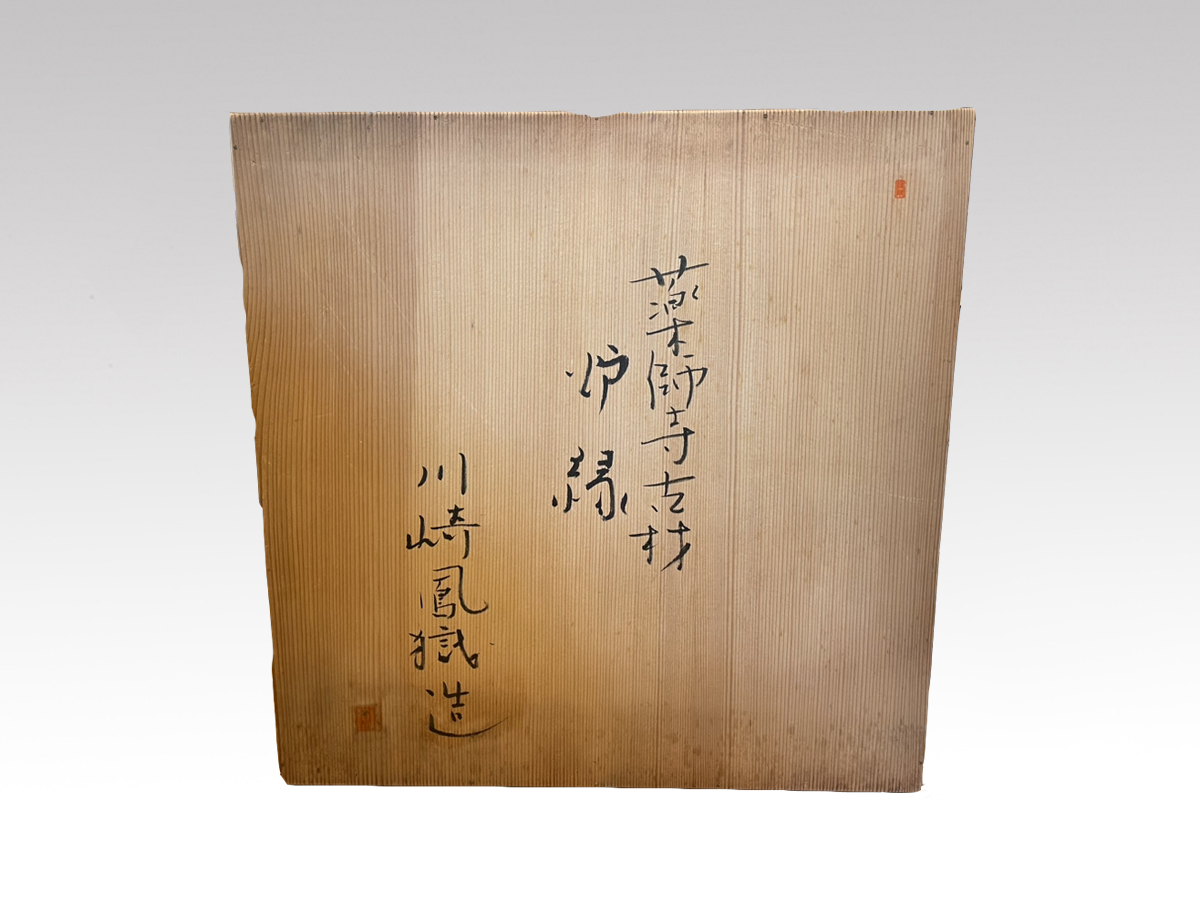 薬師寺古材
炉縁
川崎鳳嶽造